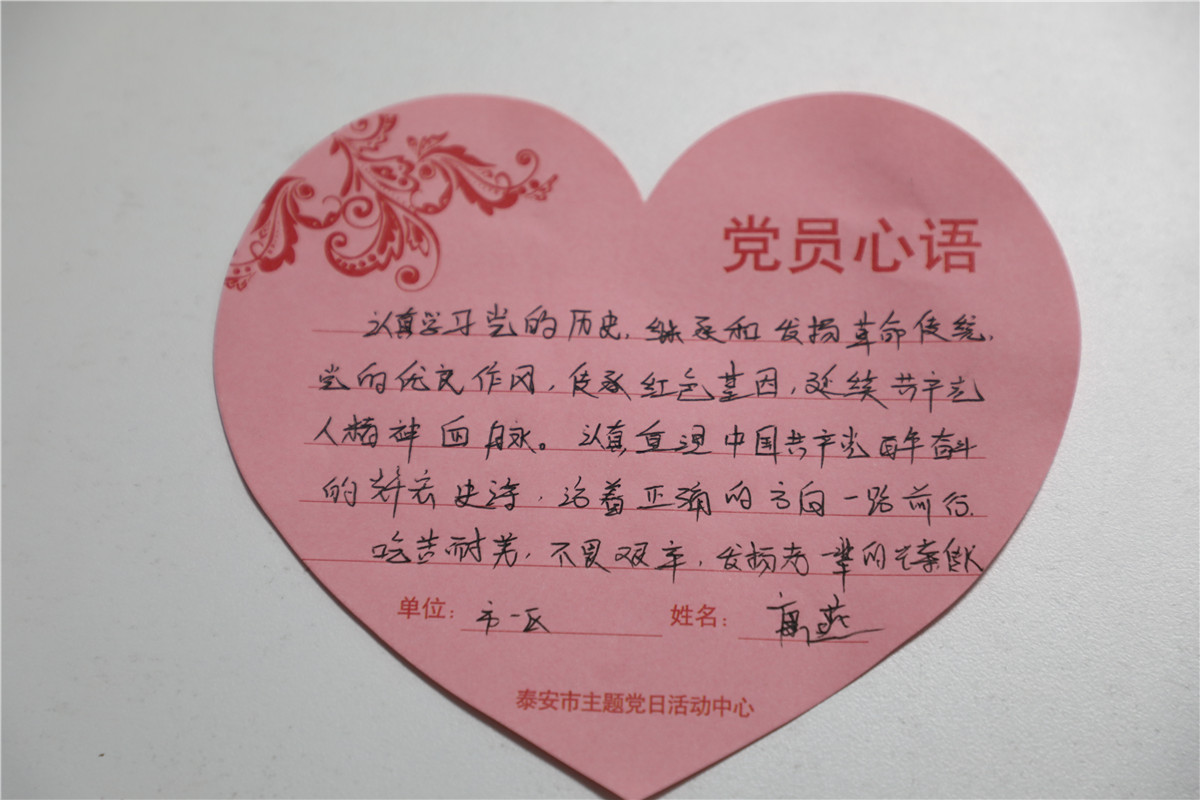 党员心语
认真学习党的历史，继承和发扬革命传统，
党的优良作风，传承红色基因，延续共产党
人精神血脉。认真重温中国共产党百年奋斗
的恢宏史诗，沿着正确的方向一路前行。
吃苦耐劳，不畏艰辛，发扬老一辈的光荣传统
单位：市一区
姓名：高燕
泰安市主题党日活动中心